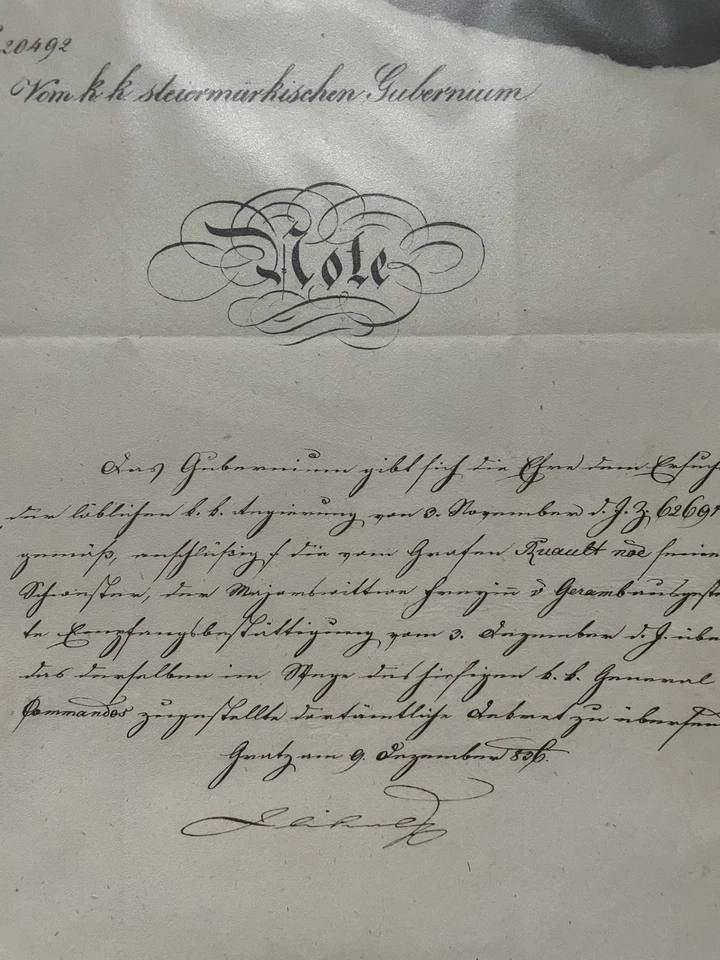 20492
Vom k k steiermärkischen Gubernium
Note
Das Gubernium gibt sich die Ehre dem Ersuch
der löblichen k. k. Regierung vom 3. November d. J. Z. 6269
gemäß, anschlüßig die vom Grafen Ruault seine
Schwester, der Majorswittwe Freyin v Gerambausgeste
te Empfangsbestättigung vom 3. Dezember d. J. übe
das derselben im Wege des hiesigen k. k. General
Commandos zugestellte dortämtliche Dekret zu übersen
Gratz am 9. Dezember 836.